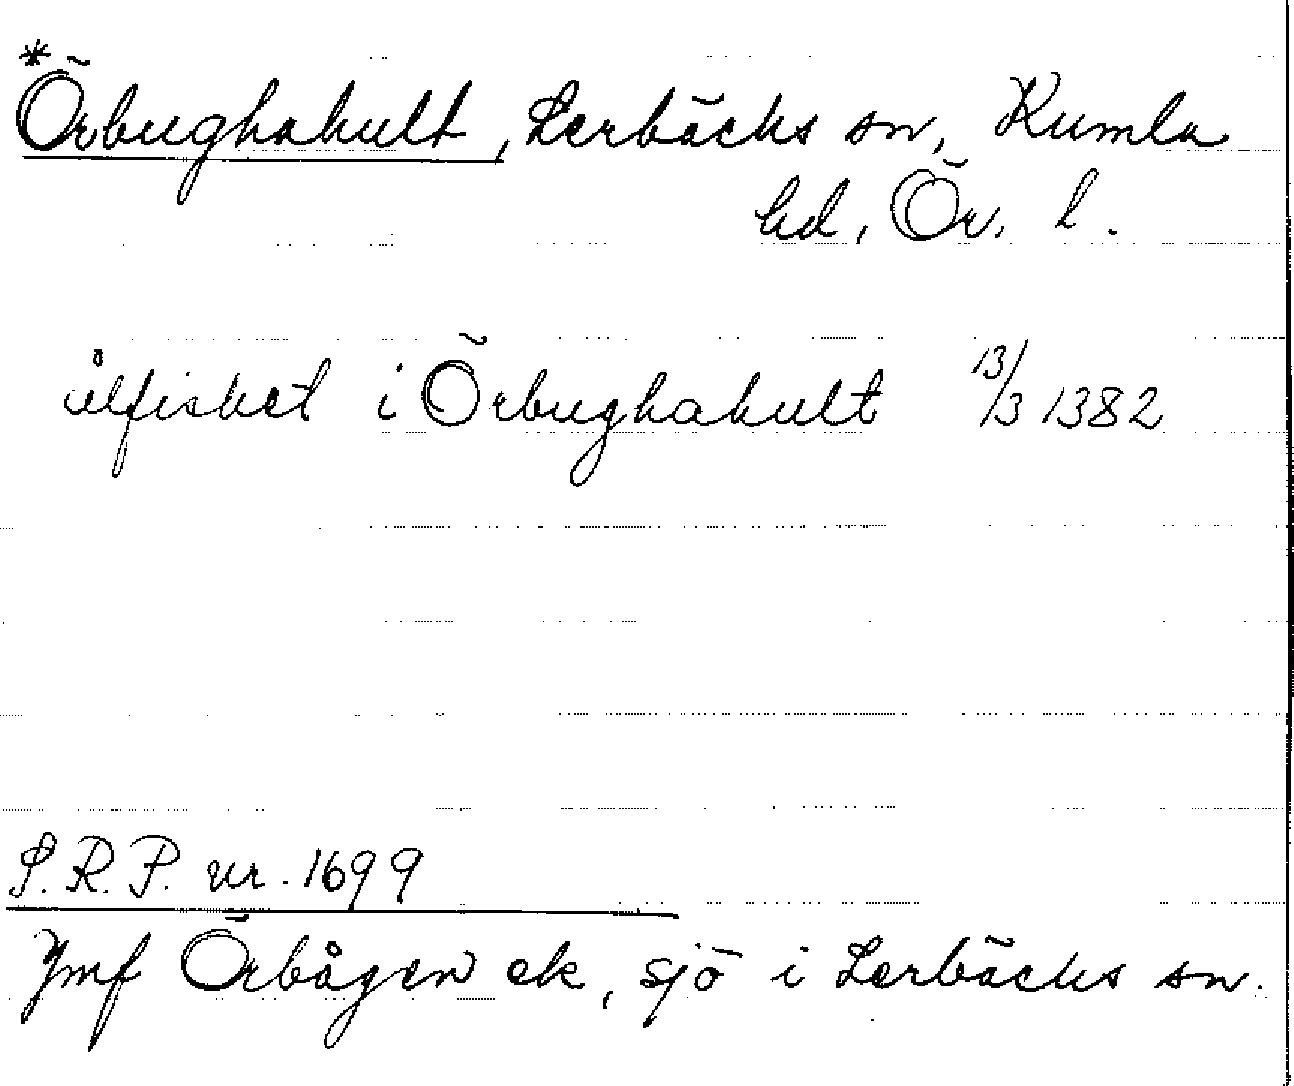 *Örbughakult, Lerbäcks sn, Kumla
hd, Ör. l.
ålfisket i Örbughakult 13/3 1382
S.R.P. nr. 1699
Jmf Örbågen ek, sjö i Lerbäcks sn.